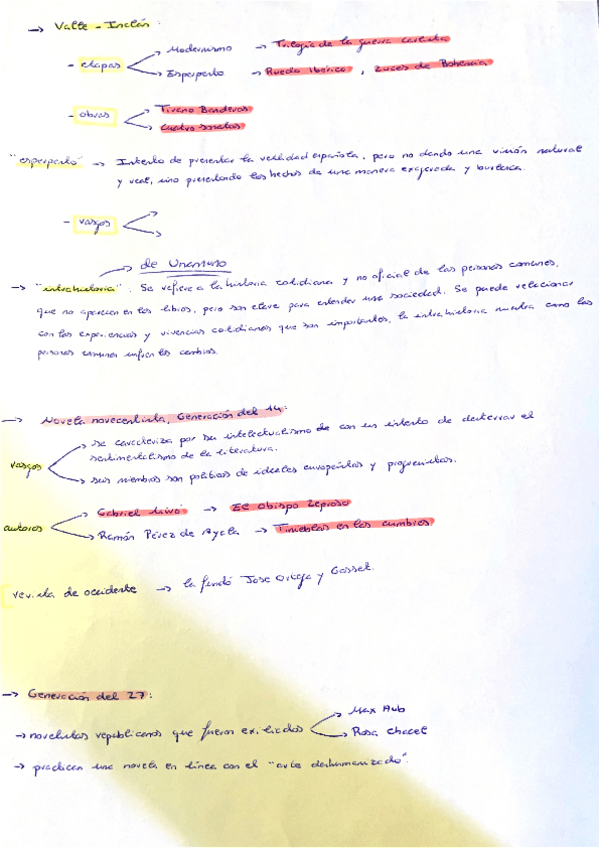 → Valle-Inclán:
- etapas
Modernismo → Trilogía de la guerra carlista
Esperpento → Ruedo Ibérico, Luces de Bohemia
- obras
Tirano Banderas
Cuatro sonatas
"esperpento" → Intento de presentar la realidad española, pero no dando una visión natural
y real, sino presentando los hechos de una manera exagerada y burlesca.
- rasgos
de Unamuno
→ "intrahistoria". Se refiere a la historia cotidiana y no oficial de las personas comunes,
que no aparecen en los libros, pero son clave para entender una sociedad. Se puede relacionar
con las experiencias y vivencias cotidianas que son importantes, la intrahistoria muestra como las
personas comunes sufren los cambios.
→ Novela novecentista, Generación del 14:
rasgos
se caracteriza por su intelectualismo de con un intento de desterrar el
sentimentalismo de la literatura.
sus miembros son políticos de ideales europeístas y progresistas.
autores
Gabriel Miró → El Obispo Leproso
Ramón Pérez de Ayala → Tinieblas en las cumbres
revista de occidente → la fundó Jose Ortega y Gasset.
→ Generación del 27:
→ novelistas republicanos que fueron exiliados
Max Aub
Rosa Chacel
→ practican una novela en línea con el "arte deshumanizado".